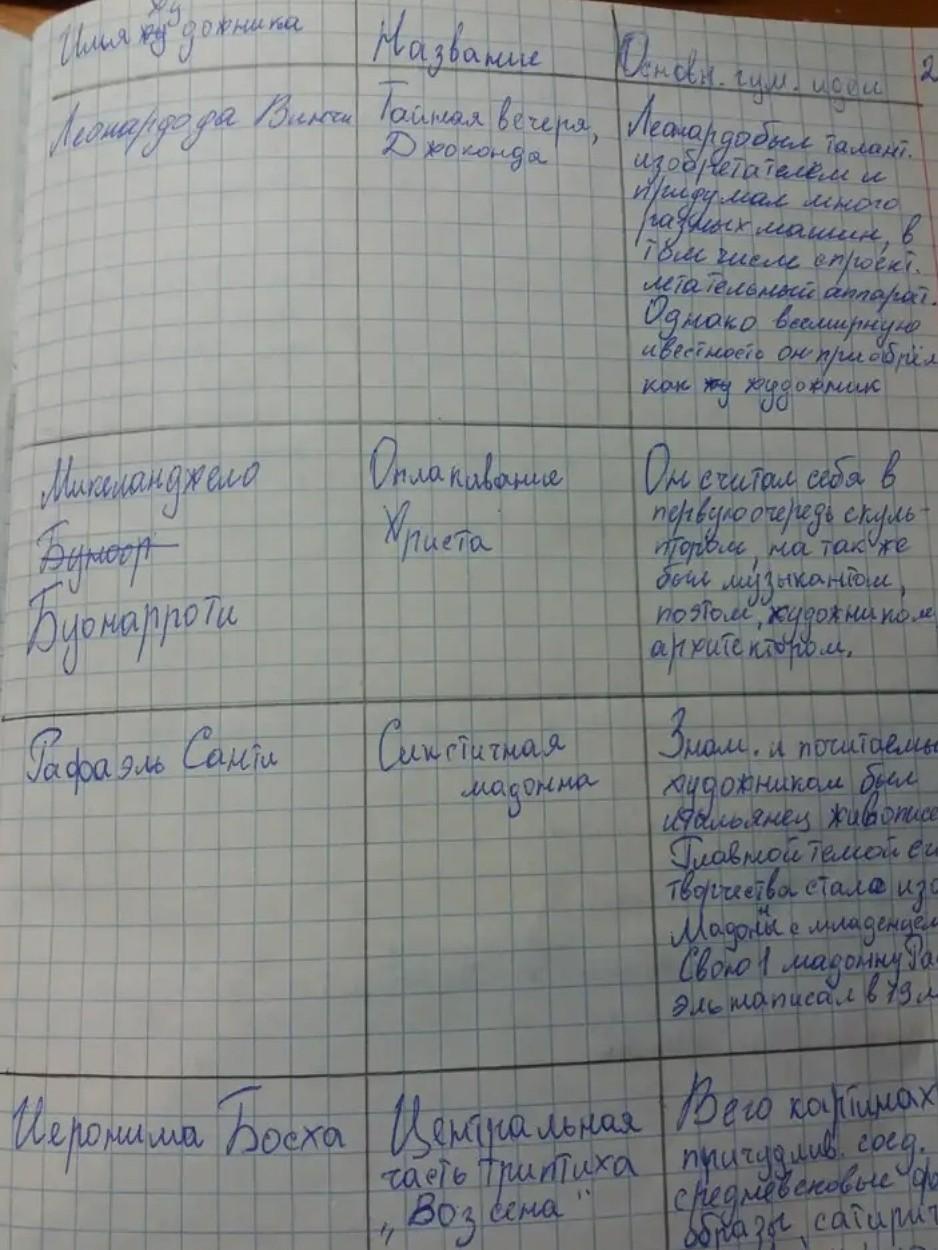 Имя художника
Название
Основн. гум. идеи
2
Леонардо да Винчи
Тайная вечеря,
Джоконда
Леонардо был талант.
изобретателем и
придумал много
разных машин, в
том числе спроект.
летательный аппарат.
Однако всемирную
ивестность он приобрёл
как художник
Микеланджело
Буонарроти
Оплакивание
Христа
Он считал себя в
первую очередь скуль-
птором, на так же
был музыкантом,
поэтом, художником
архитектором.
Рафаэль Санти
Сикстичная
мадонна
Знам. и почитаемы
художником был
итальянец живописе
Главной темой ег
творчества стала изо
Мадонны с младенцем
Свою 1 мадонну Ра
эль написал в 19 л
Иеронима Босха
Центральная
часть триптиха
„Воз сена"
В его картинах
причудлив. соед.
средневековые фа
образы, сатирич